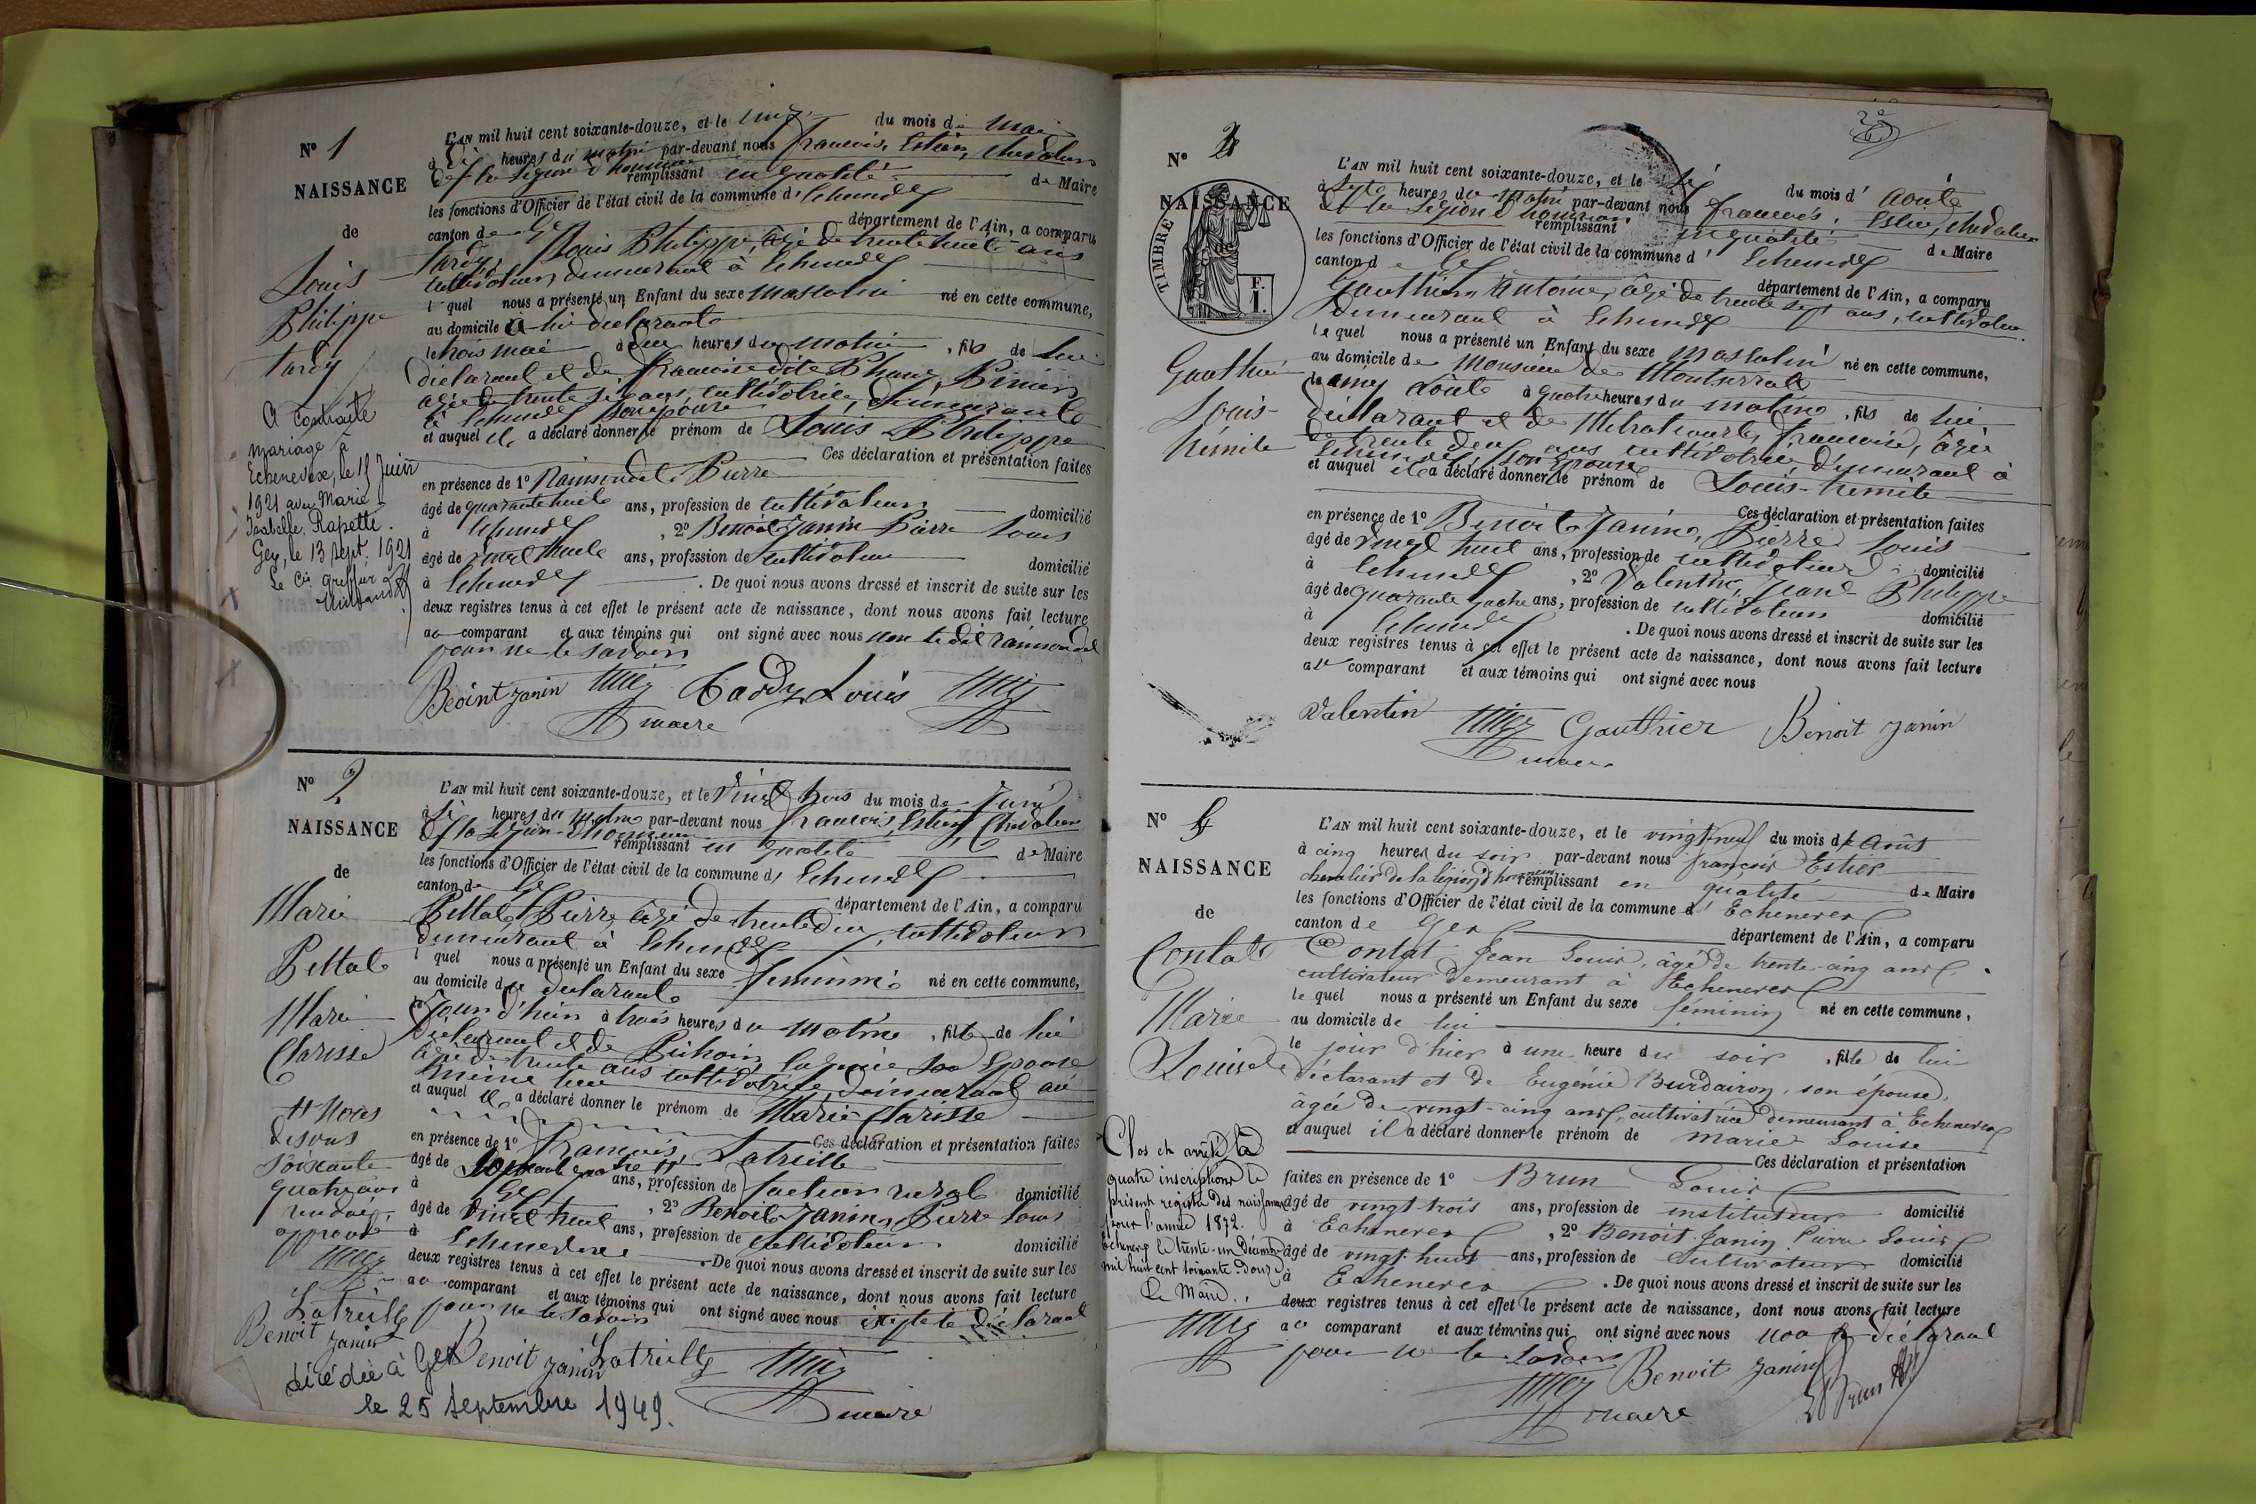 N° 1
NAISSANCE
de
Louis
Philippe
tardy
A contracté
mariage à
Echenevex, le 18 Juin
1921 avec Marie
Isabelle Rapette.
Gex, le 13 Sept. 1921
Le Cis greffier
L'AN mil huit cent soixante-douze, et le cinq du mois de mai
à six heures du matin par-devant nous françois, Estier, chevalier
de la légion d'honneur remplissant en qualité de Maire
les fonctions d'Officier de l'état civil de la commune d' Echenevex
canton de Gex département de l'Ain, a comparu
tardy, Louis Philippe, âgé de trente huit ans
cultivateur, demeurant à Echenevex
l quel nous a présenté un Enfant du sexe masculin né en cette commune,
au domicile de lui déclarant
le trois mai à heures du matin, fils de lui
déclarant et de françoise dite
âgée de trente six ans, cultivatrice, demeurante
à Echenevex son épouse
et auquel il a déclaré donner le prénom de Louis Philippe
Ces déclaration et présentation faites
en présence de 1° Pierre
âgé de quarante huit ans, profession de cultivateur domicilié
à Echenevex, 2° Benoit Janin Pierre Louis
âgé de vingt huit ans, profession de cultivateur domicilié
à Echenevex. De quoi nous avons dressé et inscrit de suite sur les
deux registres tenus à cet effet le présent acte de naissance, dont nous avons fait lecture
au comparant et aux témoins qui ont signé avec nous non le dit
pour ne le savoir
Benoit Janin Tardy Louis
maire
N° 2
NAISSANCE
de
Marie
Pettat
Marie
Clarisse
# Nous
disons
soixante
quatre ans
renvoi
approuvé
Latreille
Benoit Janin
L'AN mil huit cent soixante-douze, et le vingt trois du mois de Juin
à six heures du matin par-devant nous françois, Estier, Chevalier
de la Légion d'honneur remplissant en qualité de Maire
les fonctions d'Officier de l'état civil de la commune d' Echenevex
canton de Gex département de l'Ain, a comparu
Pettat, Pierre, âgé de trente deux, cultivateur
demeurant à Echenevex
l quel nous a présenté un Enfant du sexe féminin né en cette commune,
au domicile du déclarant
le Jour d'hier à trois heures du matin, fille de lui
déclarant et de son Epouse
âgée de trente ans cultivatrice, demeurant au
même lieu
et auquel il a déclaré donner le prénom de Marie Clarisse
Ces déclaration et présentation faites
en présence de 1° françois, Latreille
âgé de soixante quatre # ans, profession de facteur rural domicilié
à Gex, 2° Benoit Janin, Pierre Louis
âgé de vingt huit ans, profession de cultivateur domicilié
à Echenevex. De quoi nous avons dressé et inscrit de suite sur les
deux registres tenus à cet effet le présent acte de naissance, dont nous avons fait lecture
au comparant et aux témoins qui ont signé avec nous excepté le déclarant
pour ne le savoir
Benoit Janin Latreille
maire
décédée à Gex
le 25 septembre 1949.
2e
N° 3
NAISSANCE
de
TIMBRE
F.
1.
Gauthier
Louis-
trémile
L'AN mil huit cent soixante-douze, et le six du mois d' août
à sept heures du matin par-devant nous françois, Estier, chevalier
de la Légion d'honneur remplissant en qualité de Maire
les fonctions d'Officier de l'état civil de la commune d' Echenevex
canton de Gex département de l'Ain, a comparu
Gauthier, Antoine, âgé de trente sept ans, cultivateur
demeurant à Echenevex
le quel nous a présenté un Enfant du sexe masculin né en cette commune,
au domicile de Monsieur de
le cinq août à quatre heures du matin, fils de lui
déclarant et de françoise, âgée
de trente deux ans cultivatrice, demeurant à
Echenevex, son épouse
et auquel il a déclaré donner le prénom de Louis-trémile
Ces déclaration et présentation faites
en présence de 1° Benoit Janin, Pierre Louis
âgé de vingt huit ans, profession de cultivateur domicilié
à Echenevex, 2° Valentin, Jean Philippe
âgé de quarante quatre ans, profession de cultivateur domicilié
à Echenevex. De quoi nous avons dressé et inscrit de suite sur les
deux registres tenus à cet effet le présent acte de naissance, dont nous avons fait lecture
au comparant et aux témoins qui ont signé avec nous
Valentin Gauthier Benoit Janin
maire
N° 4
NAISSANCE
de
Contat
Marie
Louise
Clos et arrêté à
quatre inscriptions le
présent registre des naissances
pour l'année 1872.
Echenevex le trente-un Décembre
mil huit cent soixante-douze
Le Maire.
L'AN mil huit cent soixante-douze, et le vingt-neuf du mois d' Août
à cinq heures du soir par-devant nous françois Estier
chevalier de la légion d'honneur remplissant en qualité de Maire
les fonctions d'Officier de l'état civil de la commune d' Echenevex
canton de Gex département de l'Ain, a comparu
Contat Jean Louis, âgé de trente-cinq ans
cultivateur demeurant à Echenevex
le quel nous a présenté un Enfant du sexe féminin né en cette commune,
au domicile de lui
le jour d'hier à une heure du soir, fille de lui
déclarant et de Eugénie Burdairon, son épouse,
âgée de vingt-cinq ans, cultivatrice demeurant à Echenevex
et auquel il a déclaré donner le prénom de Marie Louise
Ces déclaration et présentation
faites en présence de 1° Brun Louis
âgé de vingt-trois ans, profession de instituteur domicilié
à Echenevex, 2° Benoit Janin Pierre Louis
âgé de vingt-huit ans, profession de Cultivateur domicilié
à Echenevex. De quoi nous avons dressé et inscrit de suite sur les
deux registres tenus à cet effet le présent acte de naissance, dont nous avons fait lecture
au comparant et aux témoins qui ont signé avec nous non le déclarant
pour ne le savoir
Benoit Janin
maire
L Brun